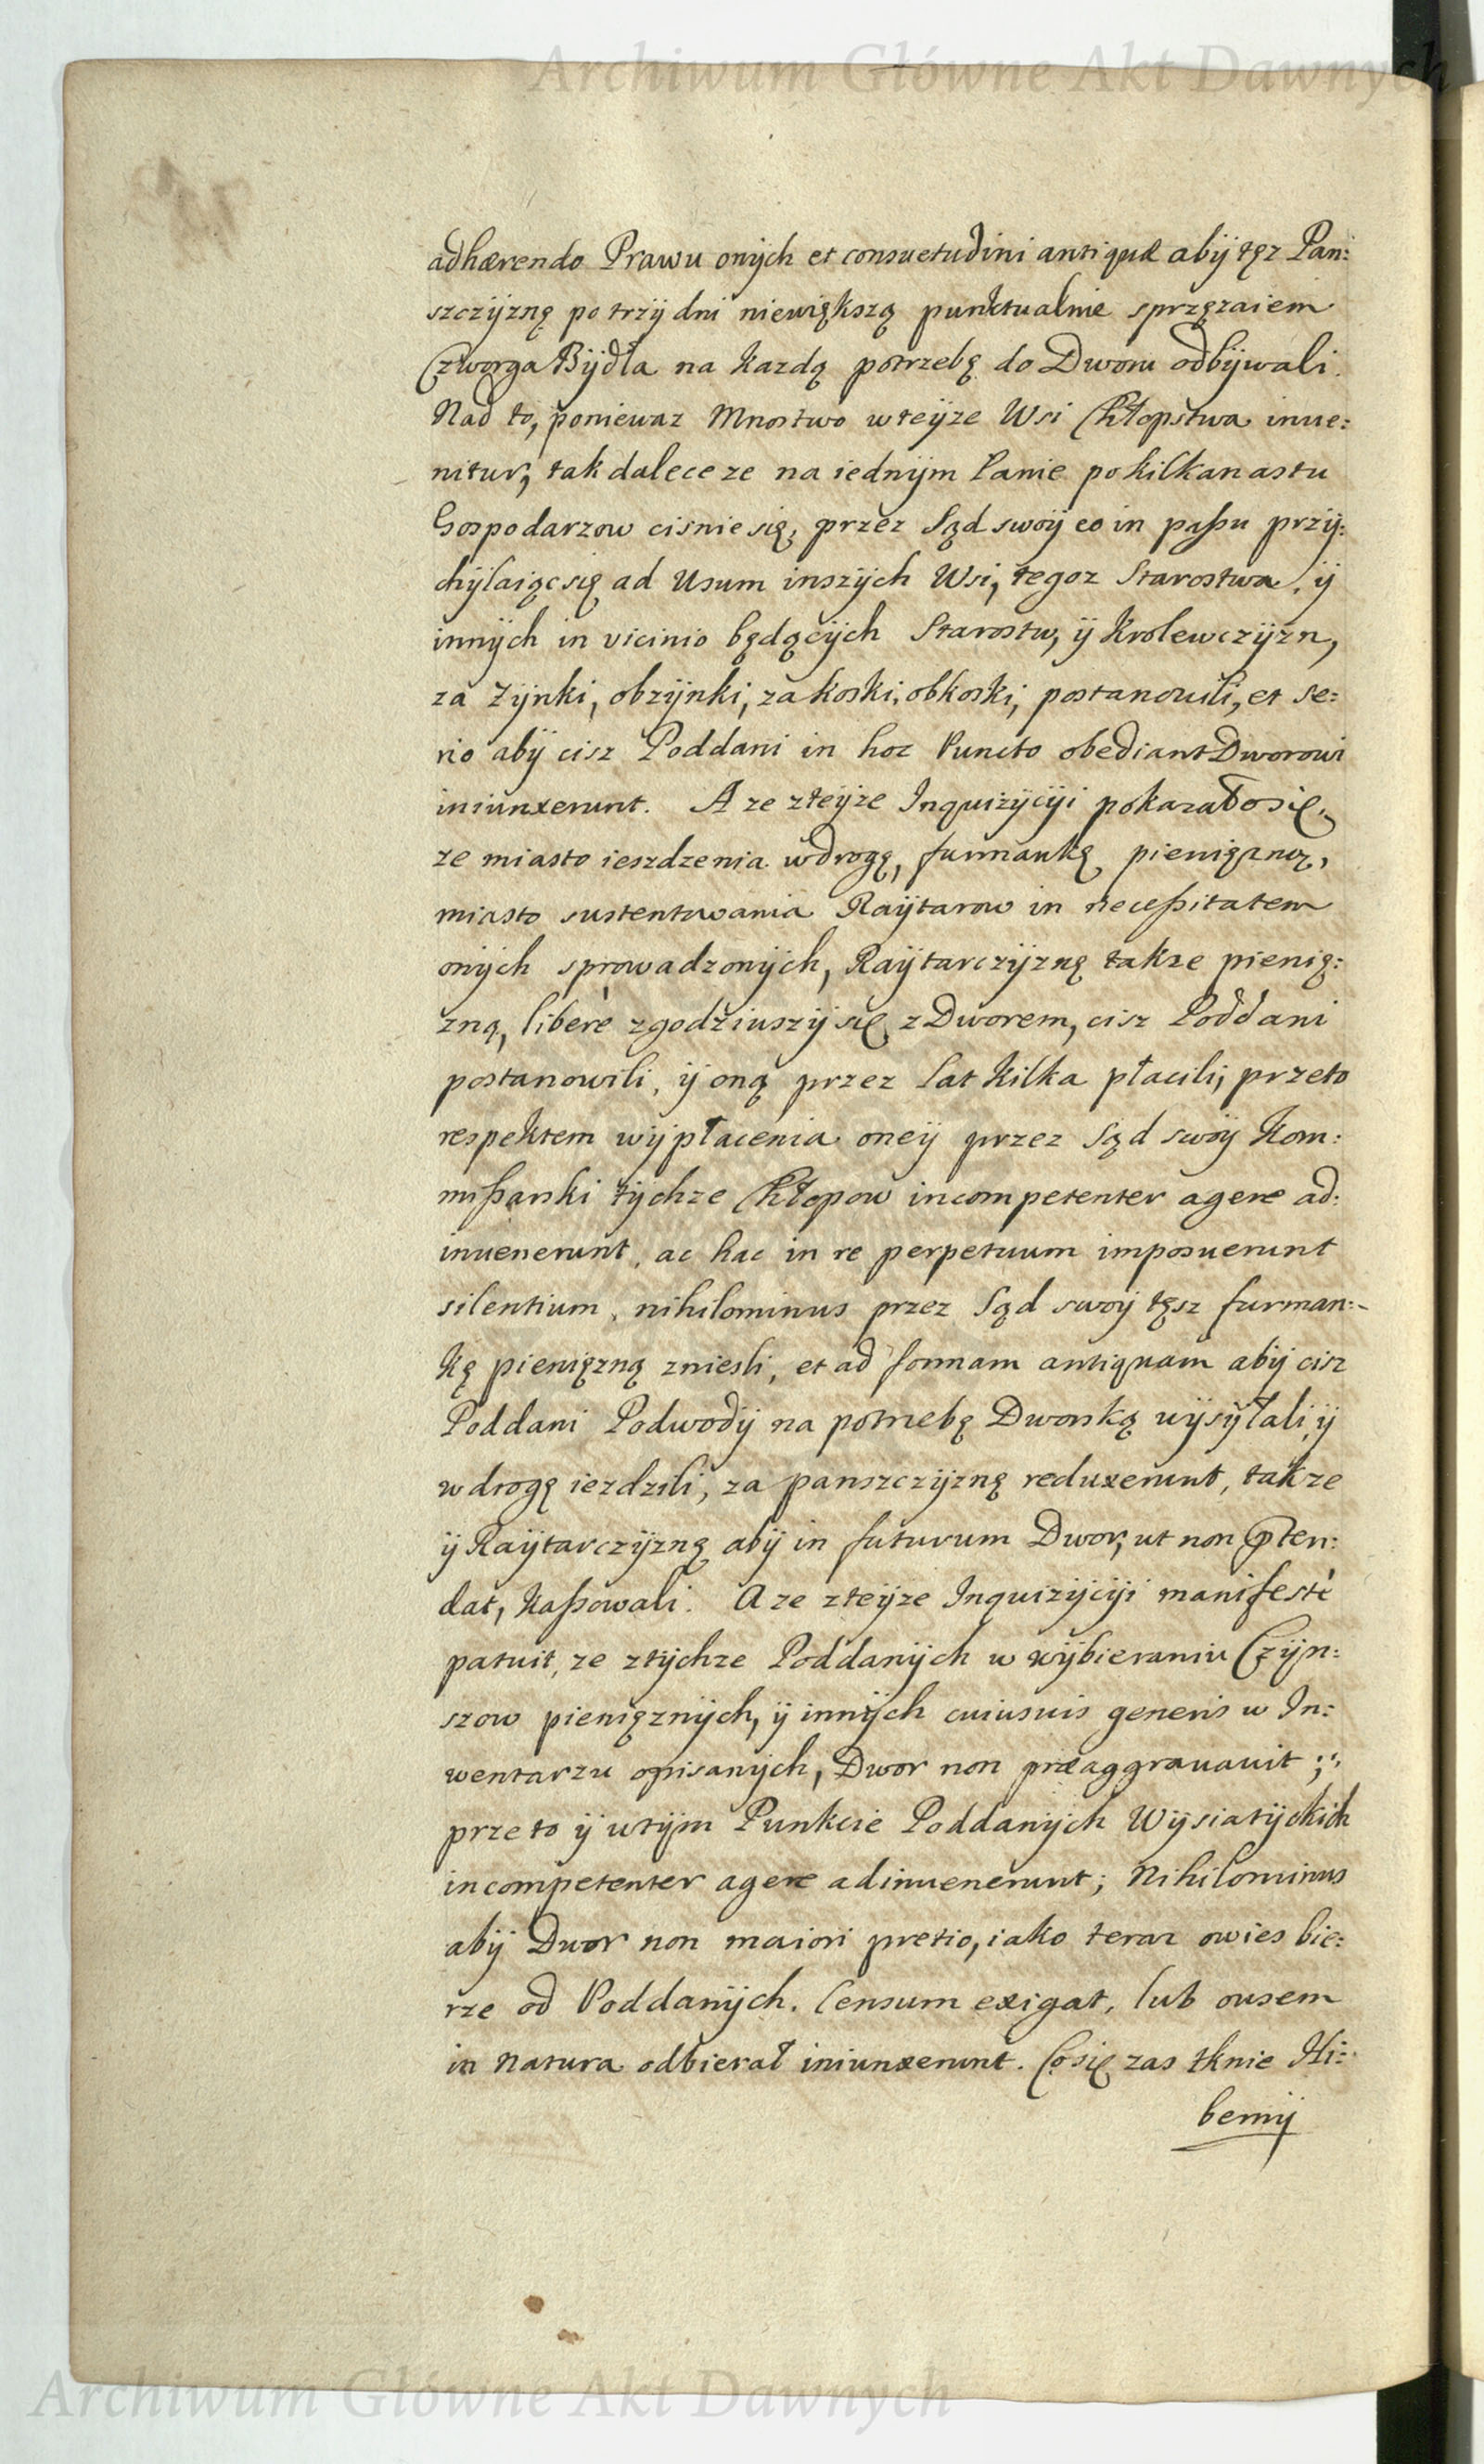 Archiwum Główne Akt Dawnych
adhærendo Prawu onÿch et consuetudini antiquæ abÿ tęz Pan:
szczÿznę po trzÿ dni niewiększą punktualnie sprzęzaiem
Czworga Bÿdła na kazdą potrzebę do Dworu odbÿwali.
Nad to, poniewaz Mnostwo wteÿze Wsi Chłopstwa inue:
nitur, tak dalece ze na iednÿm Łanie po kilkanastu
Gospodarzow cisnie się, przez Sąd swoÿ eo in paßu przÿ:
chÿlaiąc się ad Usum inszÿch Wsi, tegoz Starostwa, ÿ
innÿch in vicinio będącÿch Starostw, ÿ Krolewczÿzn,
za Zÿnki, obzÿnki, zakoski, obkoski, postanowili, et se:
rio abÿ cisz Poddani in hoc Puncto obediant Dworowi
iniunxerunt. A ze zteÿze Inquizÿcÿi pokazało się,
ze miasto ieszdzenia wdrogę, furmankę pienięzną,
miasto sustentowania Raÿtarow in neceßitatem
onÿch sprowadzonÿch, Raÿtarczÿznę takze pienię:
zną, liberè zgodziwszÿ się z Dworem, cisz Poddani
postanowili, ÿ oną przez lat kilka płacili, przeto
respektem wÿpłacenia oneÿ przez Sąd swoÿ Kom:
mißarski tÿchze Chłopow incompetenter agere ad:
inuenerunt, ac hac in re perpetuum imposuerunt
silentium, nihilominus przez Sąd swoÿ tęsz furman:
kę pienięzną zniesli, et ad formam antiquam abÿ cisz
Poddani Podwodÿ na potrzebę Dworską wÿsÿłali, ÿ
wdrogę iezdzili, za panszczÿznę reduxerunt, takze
ÿ Raÿtarczÿznę abÿ in futurum Dwor, ut non p̃ten:
dat, kaßowali. A ze zteÿze Inquizÿcÿi manifestè
patuit, ze ztÿchze Poddanÿch w wÿbieraniu Czÿn:
szow pienięznÿch, ÿ innÿch cuiusuis generis w In:
wentarzu opisanÿch, Dwor non præaggrauauit;
przeto ÿ wtÿm Punkcie Poddanÿch Wÿsiatÿckich
incompetenter agere adinuenerunt; Nihilominus
abÿ Dwor non maiori pretio, iako teraz owies bie:
rze od Poddanÿch. Censum exigat, lub owsem
in Natura odbierał iniunxerunt. Co się zas tknie Hi:
bernÿ
Archiwum Główne Akt Dawnych